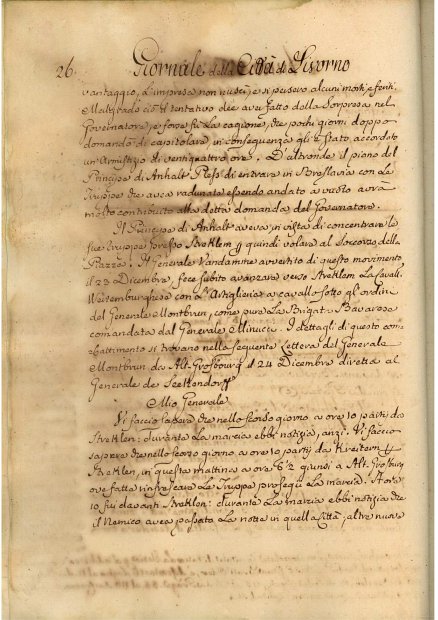 26. Giornale della Città di Livorno
vantaggio, l'impresa non riuscì, e si persero alcuni morti e feriti.
Malgrado ciò il tentativo che avea fatto della Sorpresa nel
Governatore, e forse fù la cagione, che pochi giorni doppo
domandò di capitolare, in conseguenza gli è stato accordato
un'Armistizio di ventiquattro ore. D'altronde il piano del
Principe di Anhalt Pless di entrare in Breslavia con la
Truppe che avea radunate essendo andato a vuoto avrà
molto contribuito alla detta domanda del Governatore.
Il Principe di Anhalt aveva in vista di concentrare le
sue Truppe presso Streklem e quindi volare al Soccorso della
Piazza. Il Generale Vandamme avvertito di questo movimento
il 23 Dicembre, fece subito avanzare verso Streklem La Cavall.
Wirtemburghese con Artiglieria a cavallo sotto gl'ordini
del Generale Montbrun, come pure La Brigata Bavarese
comandata dal Generale Minucci. I dettagli di questo com-
battimento si trovano nella seguente Lettera del Generale
Montbrun da Alt-Grosbourg il 24 Dicembre diretta al
Generale de Seckendorff
Mio Generale
Vi faccio sapere che nello scorso giorno a ore 10 partij da
Streklen: durante la marcia ebbi notizia, anzi. Vi faccio
sapere che nello scorso giorno a ore 10 partij da Kreitern
Streklen, in questa mattina a ore 6 1/2 giunsi a Alt-Grosburg
ove fatta rinfrescare La Truppa proseguì La marcia. A ore
10 fui davanti Streklen: durante La marcia ebbi notizia che
il Nemico avea passata La notte in quella Città; altre nuove